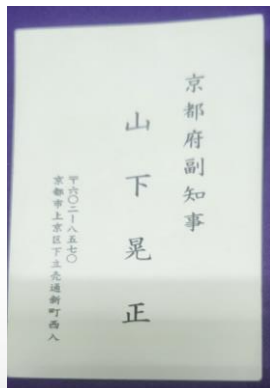 京都府副知事
山下晃正
〒六〇二ー八五七〇
京都市上京区下立売通新町西入